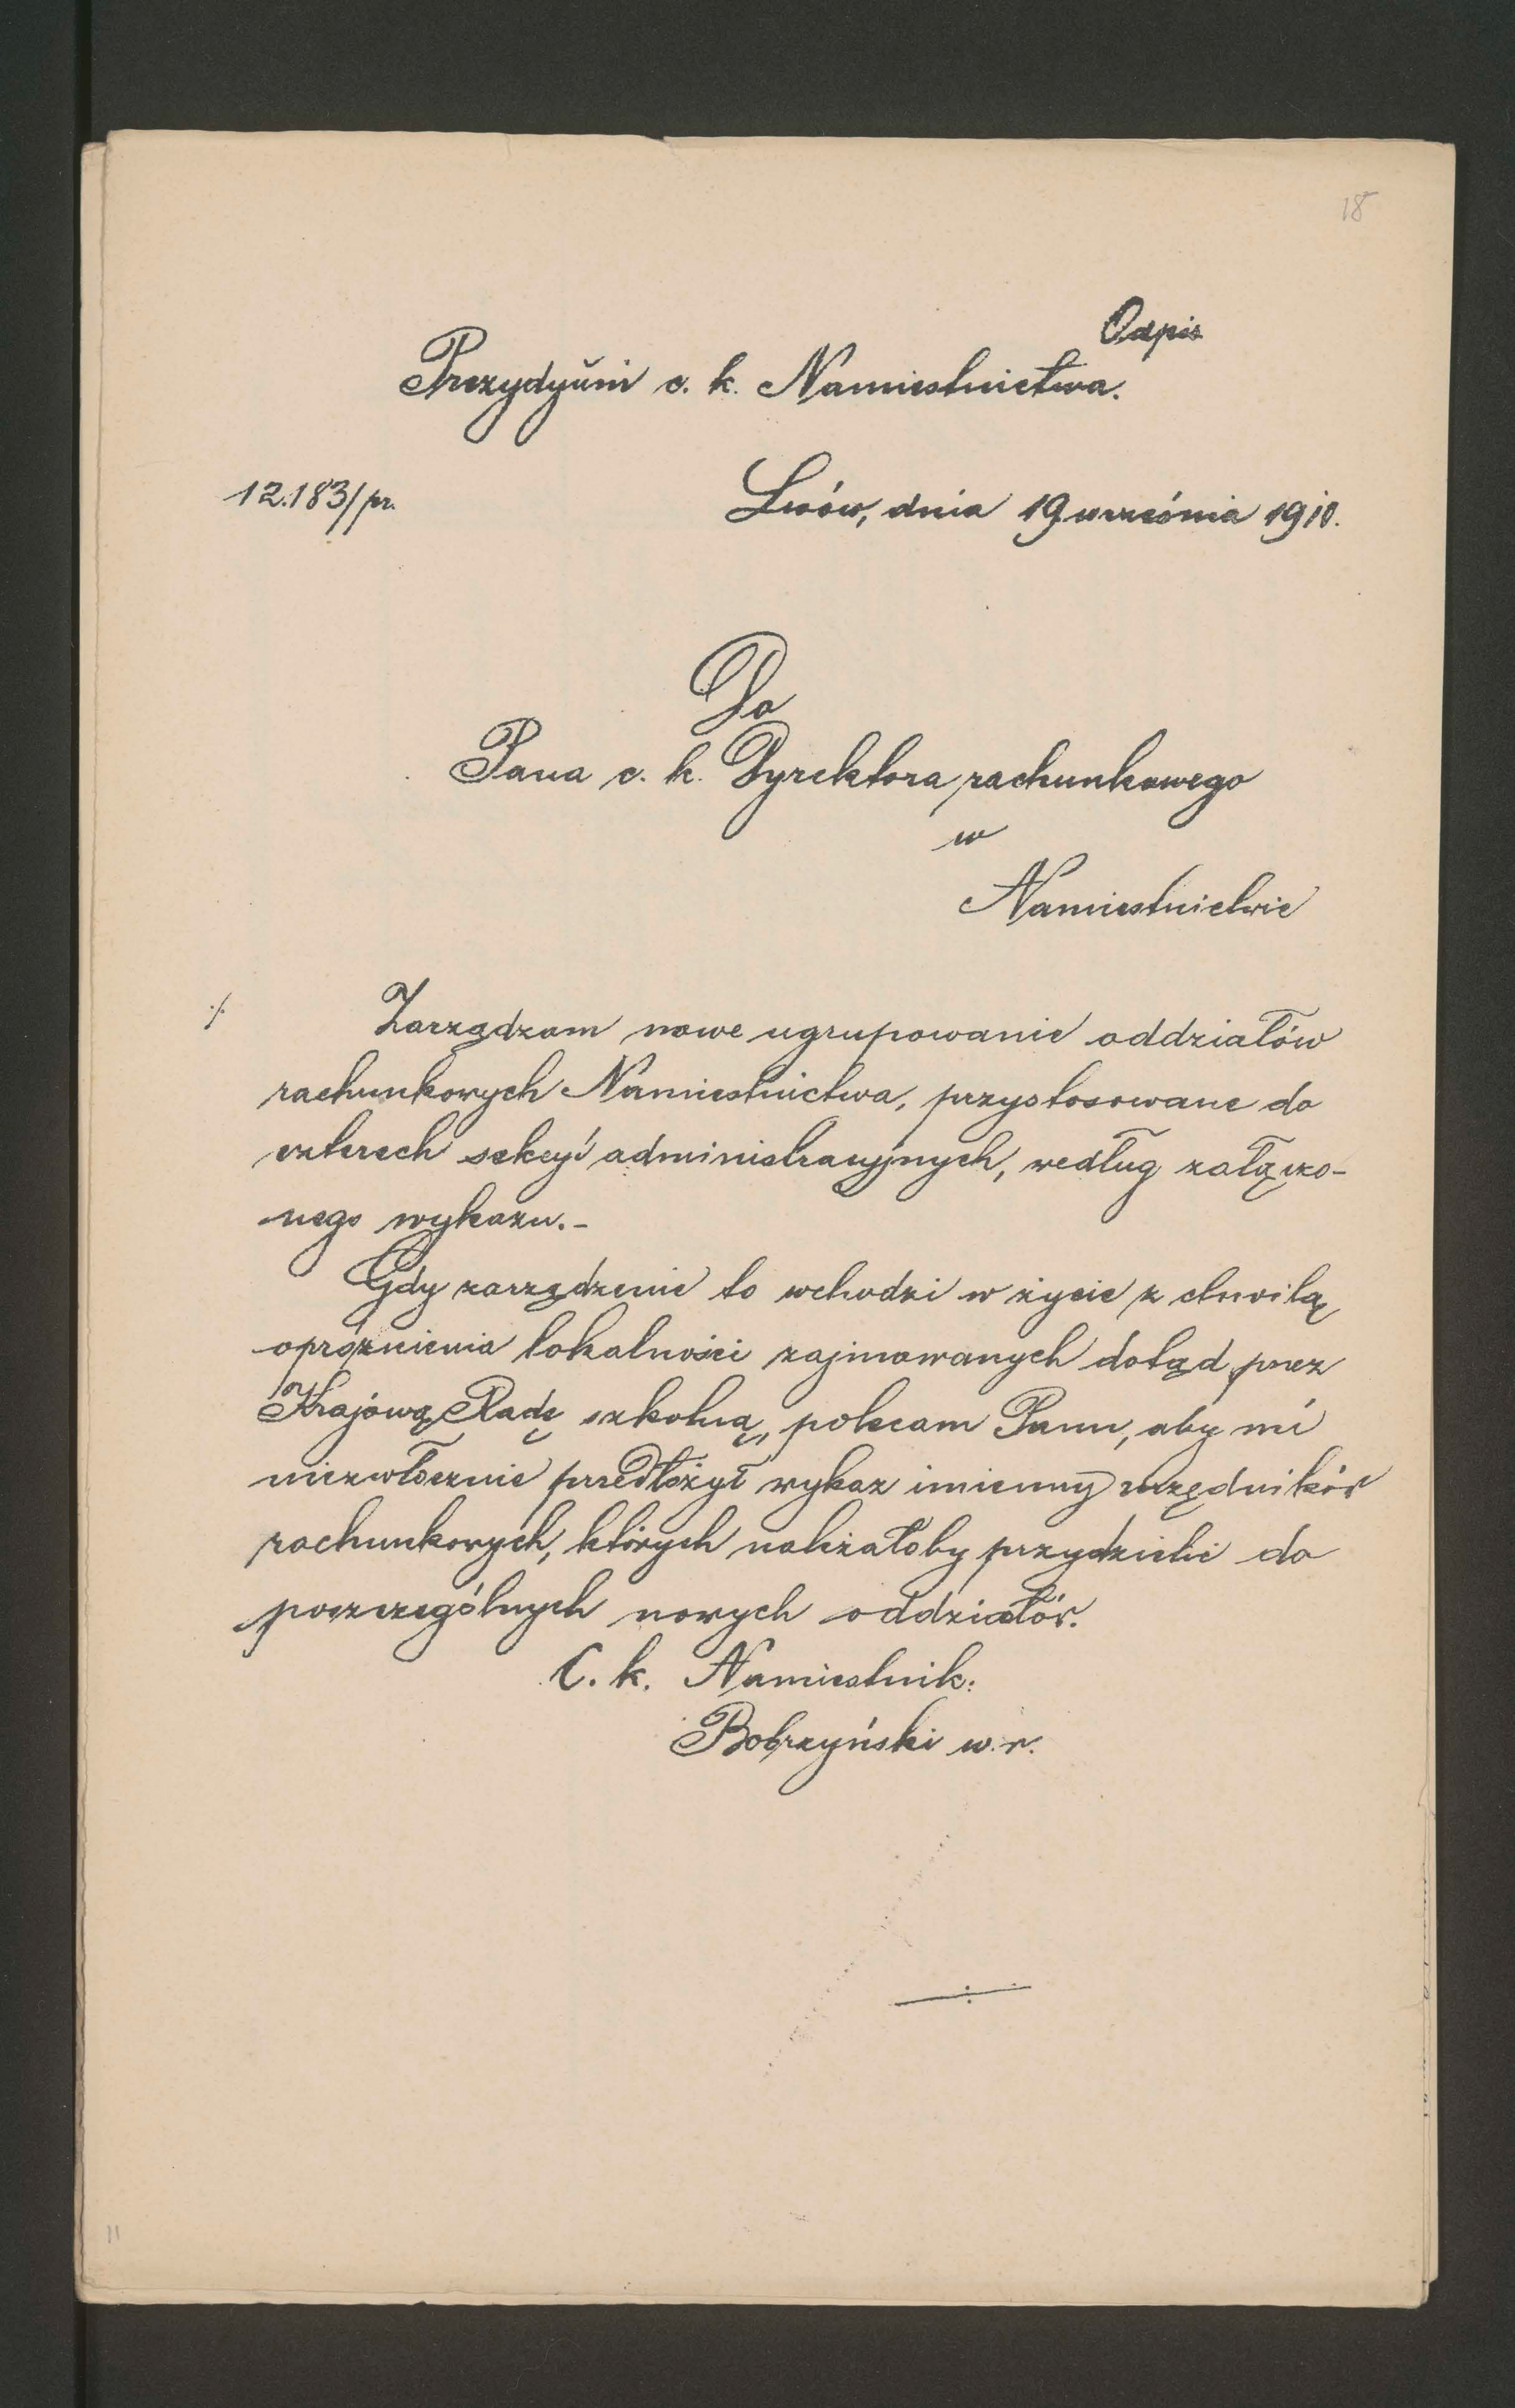 18
Odpis
Prezydyum c. k. Namiestnictwa.
12.183/pr.
Lwów, dnia 19 września 1910.
Do
Pana c. k. Dyrektora rachunkowego
w
Namiestnictwie
./.
Zarządzam nowe ugrupowanie oddziałów
rachunkowych Namiestnictwa, przystosowane do
czterech sekcyi administracyjnych, według załączo-
nego wykazu.-
Gdy zarządzenie to wchodzi w życie z chwilą
opróżnienia lokalności zajmowanych dotąd przez
Krajową Radę szkolną, polecam Panu, aby mi
niezwłocznie przedłożył wykaz imienny urzędników
rachunkowych, których należałoby przydzielić do
poszczególnych nowych oddziałów.
C. k. Namiestnik:
Bobrzyński w. r.
11